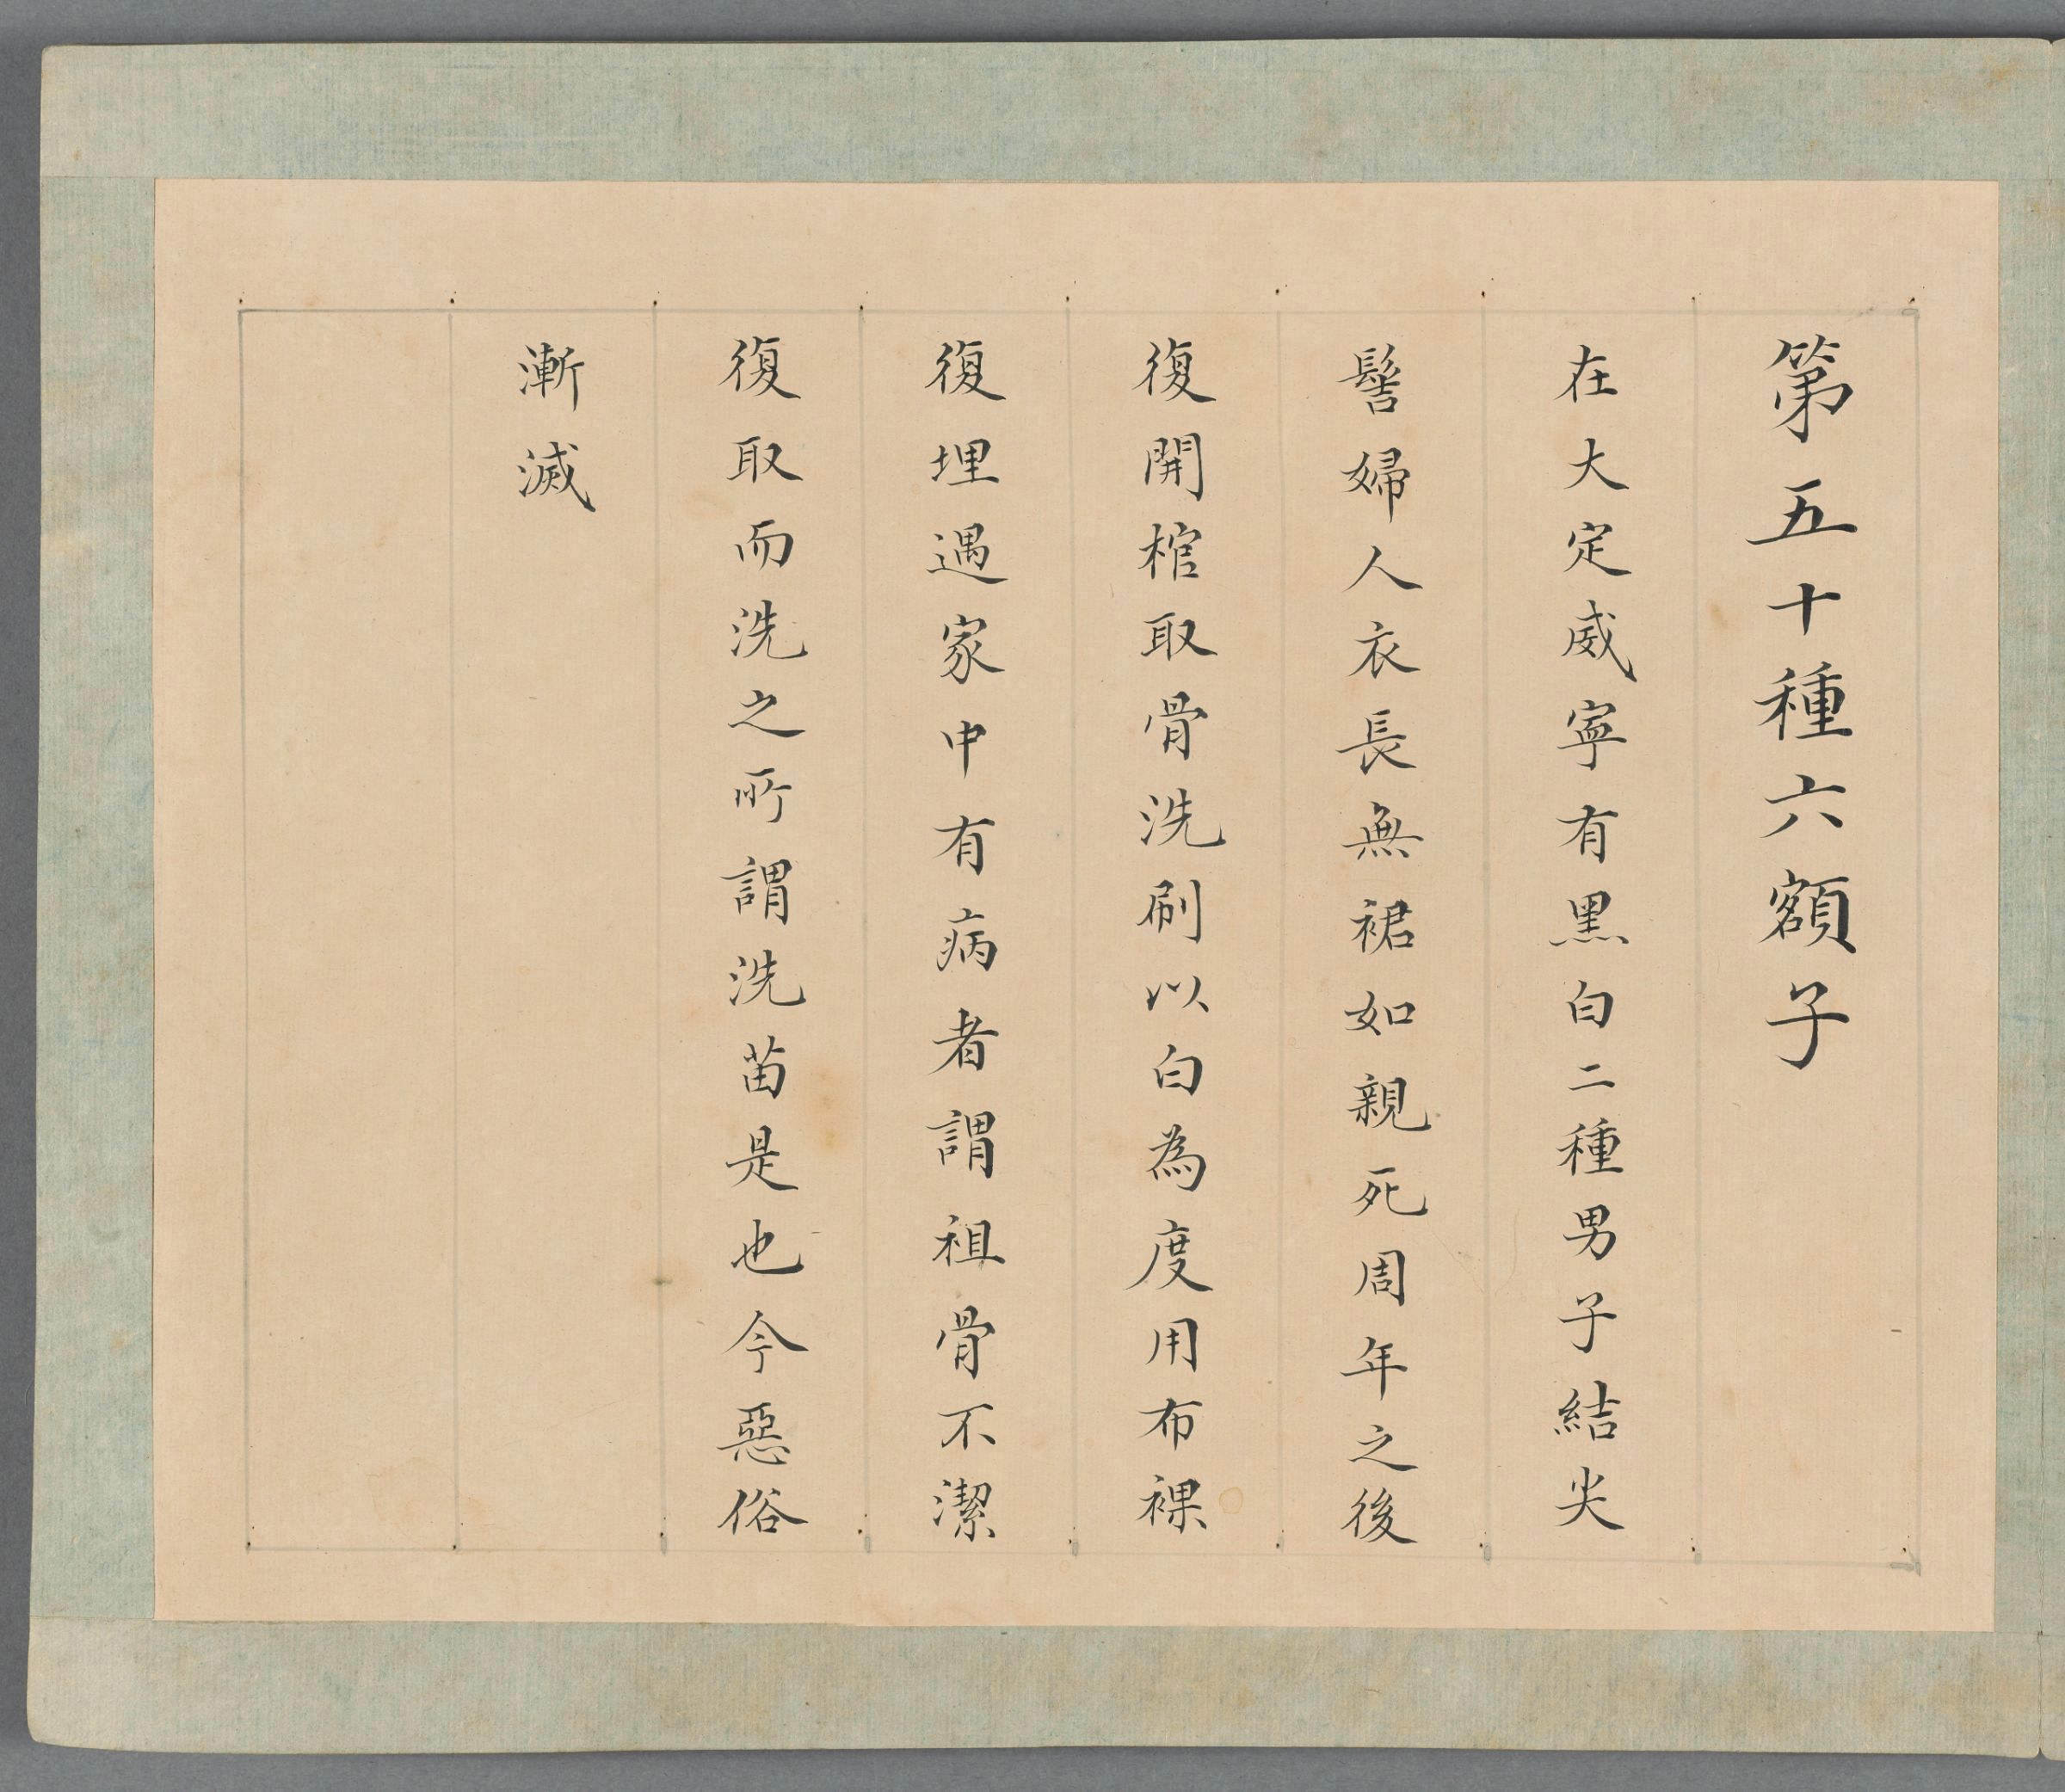 第五十種六額子
在大定威寧有黑白二種男子結尖
髻婦人衣長無裙如親死周年之後
復開棺取骨洗刷以白為度用布裸
復埋遇家中有病者謂祖骨不潔
復取而洗之所謂洗苗是也今惡俗
漸滅